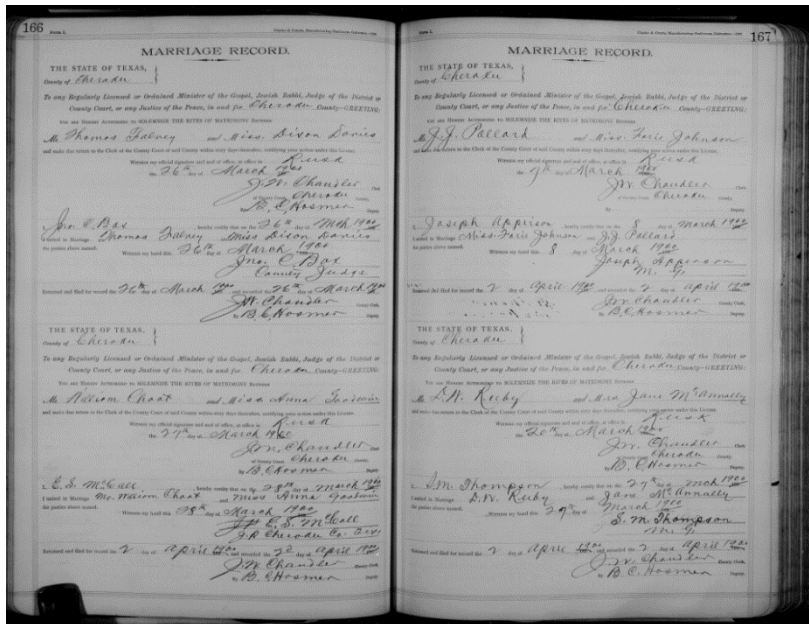 166
MARRIAGE RECORD.
THE STATE OF TEXAS,
County of Cherokee
To any Regularly Licensed or Ordained Minister of the Gospel, Jewish Rabbi, Judge of the District or
County Court, or any Justice of the Peace, in and for Cherokee County—GREETING:
YOU ARE HEREBY AUTHORIZED TO SOLEMNIZE THE RITES OF MATRIMONY BETWEEN
Mr. Thomas and Miss Dixon
and make due return to the Clerk of the County Court of said County within sixty days thereafter, certifying your action under this License.
Witness my official signature and seal of office, at office in Rusk
the 26th day of March 1900
J.W. Chandler Clerk
of County Court, Cherokee County
By B.C. Hosmer Deputy.
I, Jno. C. Box hereby certify that on the 26th day of Mch 1900
I united in Marriage Thomas and Miss Dixon
the parties above named. Witness my hand this 26th day of March 1900
Jno. C. Box
County Judge
Returned and filed for record the 26th day of March 1900, and recorded the 26th day of March 1900
J.W. Chandler County Clerk,
by B.C. Hosmer Deputy.
THE STATE OF TEXAS,
County of Cherokee
To any Regularly Licensed or Ordained Minister of the Gospel, Jewish Rabbi, Judge of the District or
County Court, or any Justice of the Peace, in and for Cherokee County—GREETING:
YOU ARE HEREBY AUTHORIZED TO SOLEMNIZE THE RITES OF MATRIMONY BETWEEN
Mr. William Choat and Miss Anna Goodwin
and make due return to the Clerk of the County Court of said County within sixty days thereafter, certifying your action under this License.
Witness my official signature and seal of office, at office in Rusk
the 27th day of March 1900
J.W. Chandler Clerk
of County Court, Cherokee County
By B.C. Hosmer Deputy.
I, E.S. McCall hereby certify that on the 28th day of March 1900
I united in Marriage Mr. Choat and Miss Anna Goodwin
the parties above named. Witness my hand this 28th day of March 1900
E.S. McCall
J.P. Cherokee Co. Tex
Returned and filed for record the 2 day of April 1900, and recorded the 2d day of April 1900
J.W. Chandler County Clerk,
by B.C. Hosmer Deputy.
167
MARRIAGE RECORD.
THE STATE OF TEXAS,
County of Cherokee
To any Regularly Licensed or Ordained Minister of the Gospel, Jewish Rabbi, Judge of the District or
County Court, or any Justice of the Peace, in and for Cherokee County—GREETING:
YOU ARE HEREBY AUTHORIZED TO SOLEMNIZE THE RITES OF MATRIMONY BETWEEN
Mr. J.J. Pollard and Miss Johnson
and make due return to the Clerk of the County Court of said County within sixty days thereafter, certifying your action under this License.
Witness my official signature and seal of office, at office in Rusk
the day of March 1900
J.W. Chandler Clerk
of County Court, Cherokee County
By Deputy.
I, Joseph hereby certify that on the 8 day of March 1900
I united in Marriage Miss Johnson and J.J. Pollard
the parties above named. Witness my hand this 8 day of March 1900
Joseph
M. G.
Returned and filed for record the 2 day of April 1900, and recorded the 2 day of April 1900
J.W. Chandler County Clerk,
by B.C. Hosmer Deputy.
THE STATE OF TEXAS,
County of Cherokee
To any Regularly Licensed or Ordained Minister of the Gospel, Jewish Rabbi, Judge of the District or
County Court, or any Justice of the Peace, in and for Cherokee County—GREETING:
YOU ARE HEREBY AUTHORIZED TO SOLEMNIZE THE RITES OF MATRIMONY BETWEEN
Mr. D.W. Ruby and Mrs. Jane McAnnally
and make due return to the Clerk of the County Court of said County within sixty days thereafter, certifying your action under this License.
Witness my official signature and seal of office, at office in Rusk
the day of March 1900
J.W. Chandler Clerk
of County Court, Cherokee County
By B.C. Hosmer Deputy.
I, S.M. Thompson hereby certify that on the 29th day of Mch 1900
I united in Marriage D.W. Ruby and Jane McAnnally
the parties above named. Witness my hand this 29th day of March 1900
S.M. Thompson
M. G.
Returned and filed for record the 2 day of April 1900, and recorded the 2 day of April 1900
J.W. Chandler County Clerk,
by B.C. Hosmer Deputy.